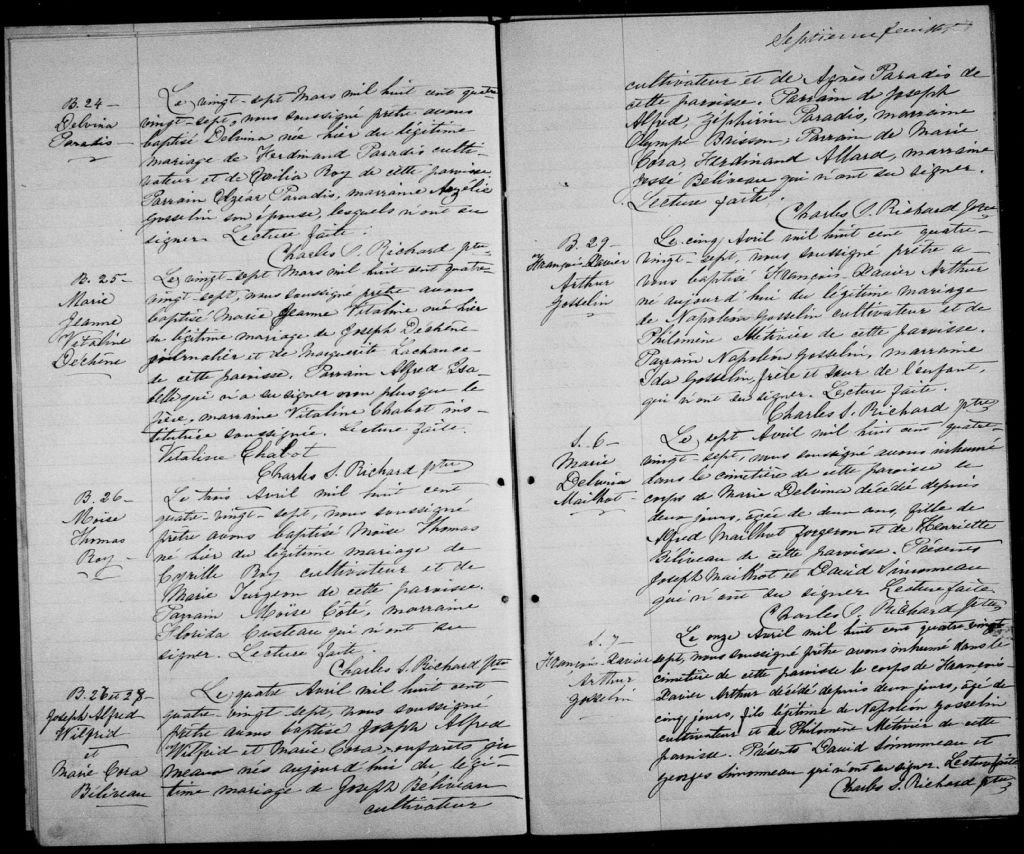 B. 24 –
Delvina
Paradis –
Le vingt-sept Mars mil huit cent quatre
vingt-sept, nous soussigné prêtre avons
baptisé Delvina née hier du légitime
mariage de Ferdinand Paradis culti-
vateur et de Cœlia Roy de cette paroisse
Parrain Elzéar Paradis, marraine Angélie
Gosselin son épouse, lesquels n'ont su
signer. Lecture faite.
Charles S. Richard ptre
B. 25 –
Marie
Jeanne
Vitaline
Dechêne
Le vingt-sept Mars mil huit cent quatre-
vingt-sept, nous soussigné prêtre avons
baptisé Marie Jeanne Vitaline née hier
du légitime mariage de Joseph Dechêne
journalier et de Marguerite Lachance
de cette paroisse. Parrain Alfred Isa-
belle qui n'a su signer non plus que le
père, marraine Vitaline Chabot ins-
titutrice soussignée. Lecture faite.
Vitaline Chabot
Charles S. Richard ptre
B. 26 –
Moïse
Thomas
Roy –
Le trois Avril mil huit cent
quatre-vingt-sept, nous soussigné
prêtre avons baptisé Moïse Thomas
né hier du légitime mariage de
Cyrille Roy cultivateur et de
Marie Turgeon de cette paroisse.
Parrain Moïse Côté, marraine
Florida Croteau qui n'ont su
signer. Lecture faite.
Charles S. Richard ptre
B. 26 et 28
Joseph Alfred
Wilfrid
et
Marie Cora
Béliveau
Le quatre Avril mil huit cent
quatre-vingt sept, nous soussigné
prêtre avons baptisé Joseph Alfred
Wilfrid et Marie Cora enfants ju
meaux nés aujourd'hui du légi-
time mariage de Joseph Béliveau
cultivateur
Septième feuillet
cultivateur et de Agnès Paradis de
cette paroisse. Parrain de Joseph
Alfred, Zéphirin Paradis, marraine
Olympe Boisson, Parrain de Marie
Cora, Ferdinand Allard, marraine
Jessé Béliveau qui n'ont su signer.
Lecture faite.
Charles S. Richard ptre
B. 29 –
François Xavier
Arthur
Gosselin
Le cinq Avril mil huit cent quatre-
vingt-sept, nous soussigné prêtre a
vons baptisé François Xavier Arthur
né aujourd'hui du légitime mariage
de Napoléon Gosselin cultivateur et de
Philomène Métivier de cette paroisse.
Parrain Napoléon Gosselin, marraine
Ida Gosselin, frère et sœur de l'enfant,
qui n'ont su signer. Lecture faite.
Charles S. Richard ptre
S. 6 –
Marie
Delvina
Mailhot –
Le sept Avril mil huit cent quatre-
vingt-sept, nous soussigné avons inhumé
dans le cimetière de cette paroisse le
corps de Marie Delvina décédée depuis
deux jours, âgée de deux ans, fille de
Alfred Mailhot forgeron et de Henriette
Béliveau de cette paroisse. Présents
Joseph Mailhot et David Simonneau
qui n'ont su signer. Lecture faite.
Charles S. Richard ptre
S. 7 –
François Xavier
Arthur
Gosselin
Le onze Avril mil huit cent quatre vingt
sept, nous soussigné prêtre avons inhumé dans le
cimetière de cette paroisse le corps de François
Xavier Arthur décédé depuis deux jours, âgé de
cinq jours, fils légitime de Napoléon Gosselin
cultivateur et de Philomène Métivier de cette
paroisse. Présents David Simonneau et
Georges Simonneau qui n'ont su signer. Lecture faite
Charles S. Richard ptre